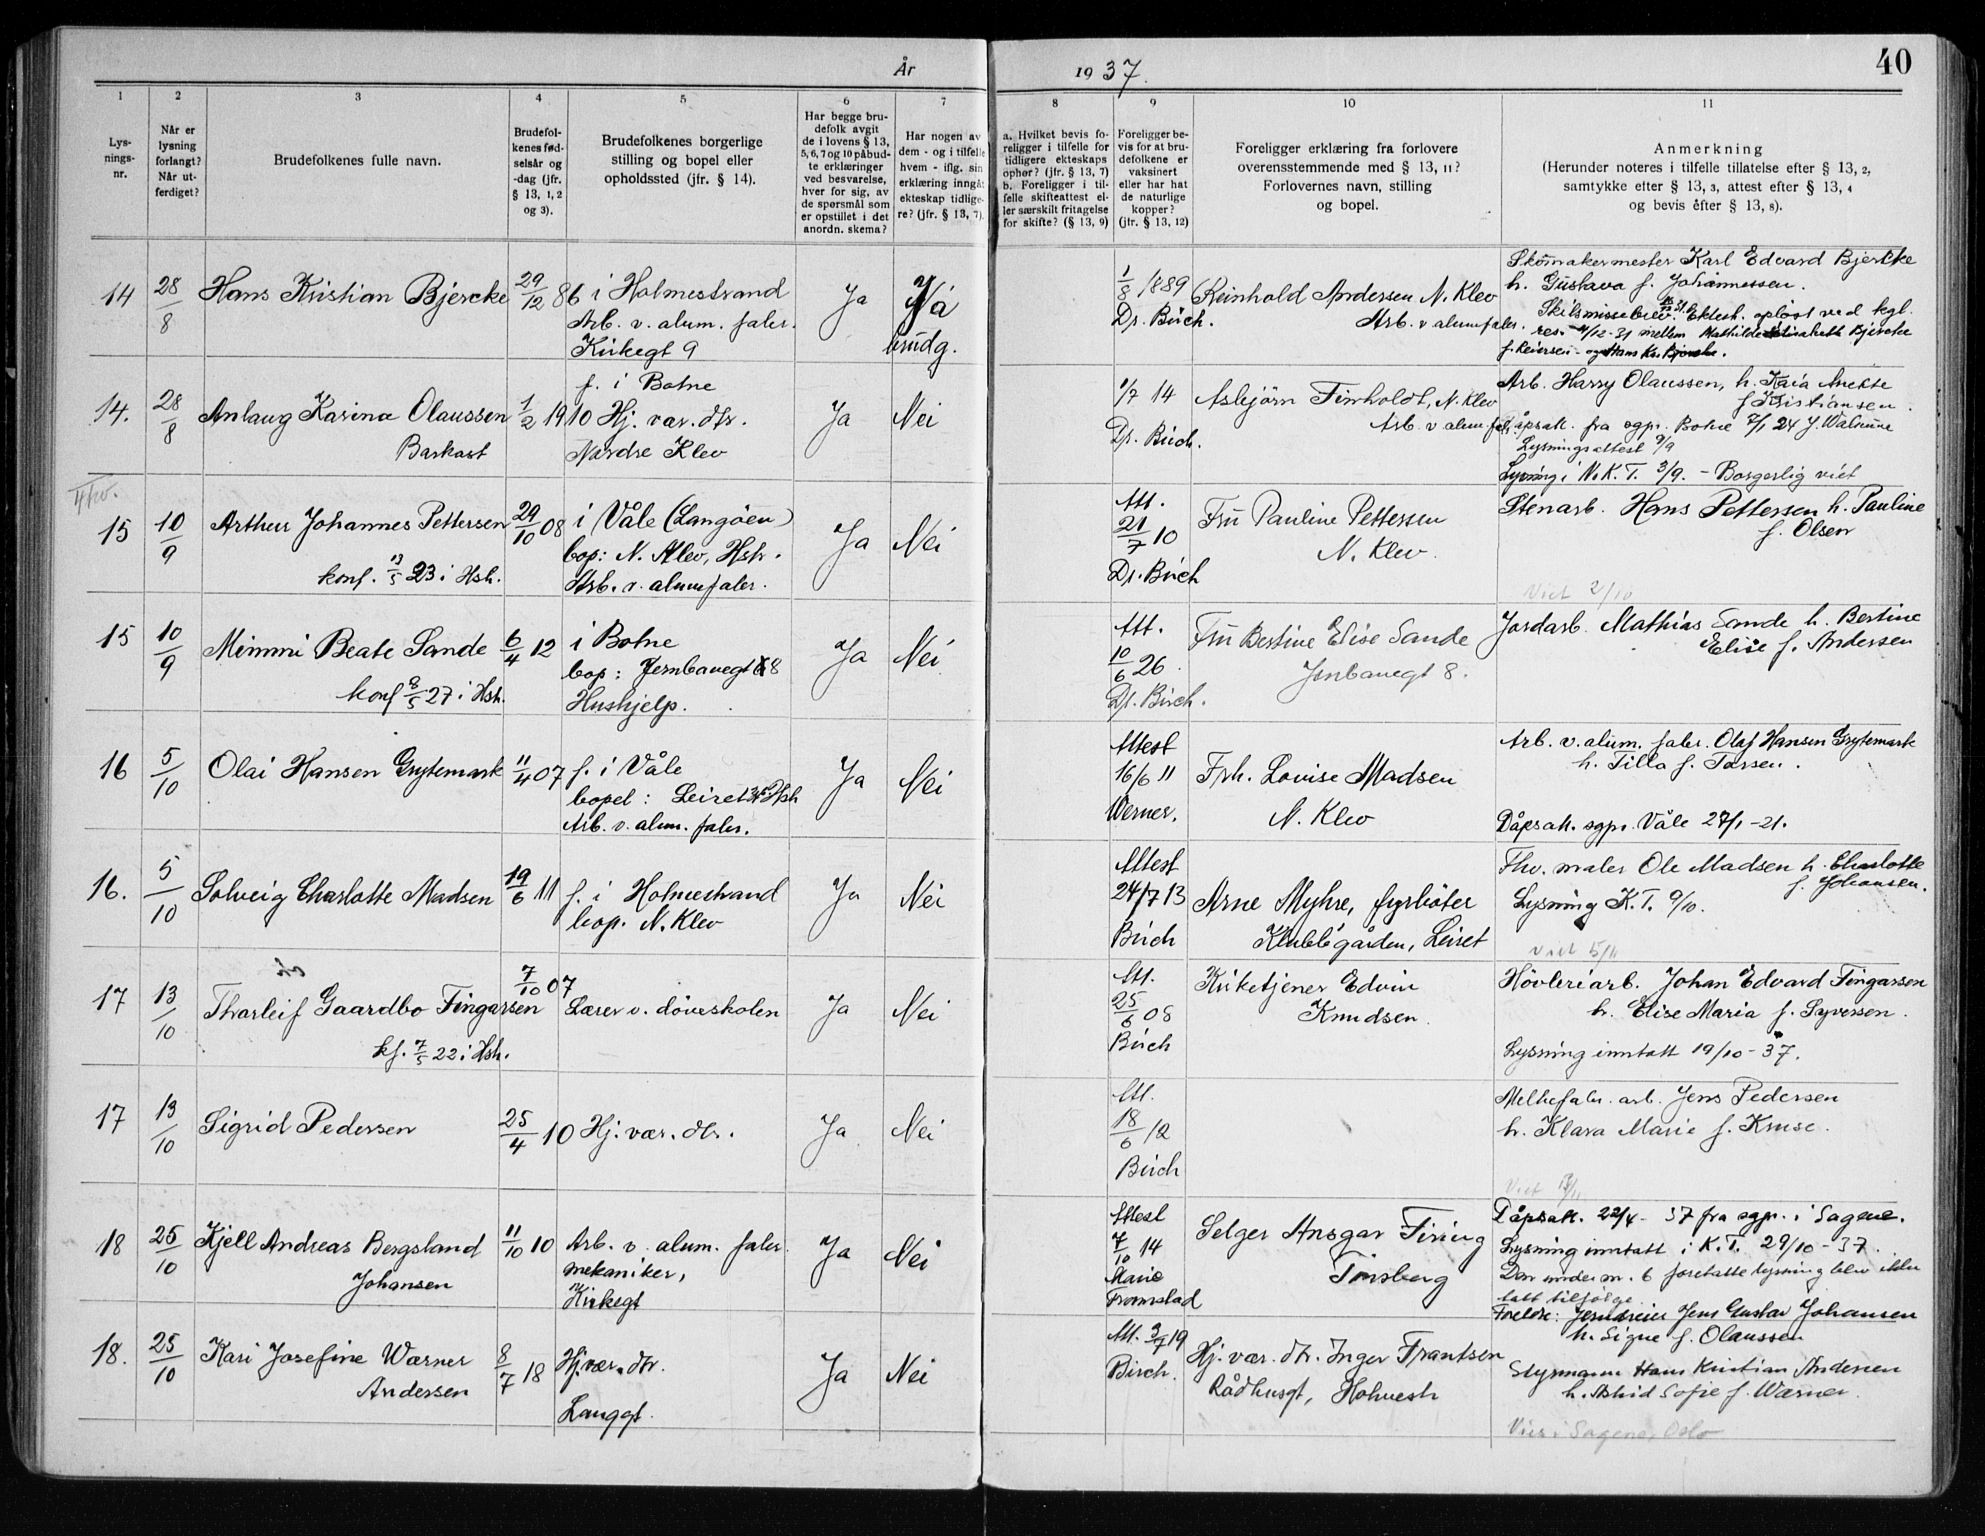 År
19 37.
40
1
2
3
4
5
6
7
8
9
10
11
Lys-
nings-
nr.
Når er
lysning
forlangt?
Når ut-
ferdiget?
Brudefolkenes fulle navn.
Brudefol-
kenes fød-
selsår og
-dag (jfr.
§ 13, 1, 2
og 3).
Brudefolkenes borgerlige
stilling og bopel eller
opholdssted (jfr. § 14).
Har begge bru-
defolk avgit
de i lovens § 13,
5, 6, 7 og 10 påbud-
te erklæringer
ved besvarelse,
hver for sig, av
de spørsmål som
er opstillet i det
anordn. skema?
Har nogen av
dem - og i tilfelle
hvem - iflg. sin
erklæring inngåt
ekteskap tidlige-
re? (jfr. § 13, 7).
a. Hvilket bevis fo-
religger i tilfelle for
tidligere ekteskaps
ophør? (jfr. § 13, 7)
b. Foreligger i til-
felle skifteattest el-
ler særskilt fritagelse
for skifte? (§ 13, 9)
Foreligger be-
vis for at bru-
defolkene er
vaksinert
eller har hat
de naturlige
kopper?
(jfr. § 13, 12)
Foreligger erklæring fra forlovere
overensstemmende med § 13, 11?
Forlovernes navn, stilling
og bopel.
Anmerkning
(Herunder noteres i tilfelle tillatelse efter § 13, 2,
samtykke efter § 13, 3, attest efter § 13, 4
og bevis efter § 13, 8).
14 28/8 Hans Kristian Bjercke 29/12 86 i Holmestrand
Arb. v. alum. fabr.
Kirkegt 9
Ja
Ja
brudg.
1/8 1889
Dr. Birch.
Reinhold Andersen N. Klev
Arb. v alumfabr.
Skomakermester Karl Edvard Bjercke
h. Gustava f. Johannessen.
Skilsmissebrev. Ektesk. opløst ved kgl.
res. 11/12-31 mellem Mathilde Elisabeth Bjercke
f. Reiersen - og Hans Kr. Bjercke.
14. 28/8 Anlaug Karina Olaussen
Barkost
1/2 1910
f. i Botne
Hj. vær. dtr.
Nordre Klev
Ja
Nei
1/7 14
Dr. Birch.
Asbjörn Firholdt, N. Klev
Arb. v alum fabr.
Arb. Harry Olaussen, h. Kaia
f Kristiansen.
Dåpsatt. fra sgpr. Botne 7/1 24
Lysningsattest 9/9
Lysning i N. K. T. 3/9. - Borgerlig viet
15 10/9 Arthur Johannes Pettersen
konf. 13/5 23 i Hstr.
29/10 08
i Våle (Langöen)
bop: N. Klev, Hstr.
Arb. v. alumfabr.
Ja
Nei
Att.
21/7 10
Dr. Birch
Fru Pauline Pettersen
N. Klev.
Stenarb. Hans Pettersen h. Pauline
f. Olsen
Viet 2/10
15 10/9 Mimmi Beate Sande
konf 8/5 27 i Hstr.
6/4 12
i Botne
bop: Jernbanegt 8
Hushjelp.
Ja
Nei
Att.
10/6 26
Dr. Birch.
Fru Bertine Elise Sande
Jernbanegt 8.
Jordarb. Mathias Sande h. Bertine
Elise f. Andersen
16 5/10 Olai Hansen Grytemark 11/4 07 f. i Våle
bopel: Leiret Hstr
Arb. v. alum. fabr.
Ja
Nei
Attest
16/6 11
Werner.
Frk. Louise Madsen
N. Klev
Arb. v. alum. fabr. Olaf Hansen Grytemark
h. Tilla f. Tarsen.
Dåpsatt. sgpr. Våle 27/1-21.
16. 5/10 Solveig Charlotte Madsen 19/6 11 f. i Holmestrand
bop. N. Klev
Ja
Nei
Attest
24/7 13
Birch
Arne Myhre, fyrböter
Klubbgården, Leiret
Fhv. maler Ole Madsen h. Charlotte
f. Johansen.
Lysning K. T. 9/10.
Viet 5/11
17 13/10 Thorleif Gaardbo Fingarsen
kf. 7/5 22 i Hstr.
7/10 07
Lærer v. döveskolen
Ja
Nei
Att.
25/6 08
Birch
Kirketjener Edvin
Knudsen.
Hövleriarb. Johan Edvard Fingarsen
h. Elise Maria f. Syversen.
Lysning inntatt 19/10-37.
17 13/10 Sigrid Pedersen 25/4 10 Hj. vær. dtr.
Ja
Nei
Att.
18/6 12
Birch
Melkefabr. arb. Jens Pedersen
h. Klara Marie f. Kruse.
Viet
18 25/10 Kjell Andreas Bergsland
Johansen
11/10 10
Arb. v. alum. fabr.
mekaniker,
Kirkegt
Ja
Nei
Attest
7/10 14
Marie
Fromstad
Selger Ansgar Firing
Tönsberg
Dåpsatt. 22/4-37 fra sgpr. i Sagene.
Lysning inntatt i K. T. 29/10-37.
Den under nr. 6 foretatte lysning blev ikke
tatt tilfölge
Foreldre: Jens Gustav Johansen
h. Signe f. Olaussen
18. 25/10 Kari Josefine Wærner
Andersen
8/7 18
Hj. vær. dtr.
Langgt.
Ja
Nei
Att. 3/9 19
Birch.
Hj. vær. dtr. Inger Frantsen
Rådhusgt, Holmestr
Styrmann Hans Kristian Andersen
h. Astrid Sofie f. Wærner.
Vies i Sagene, Oslo